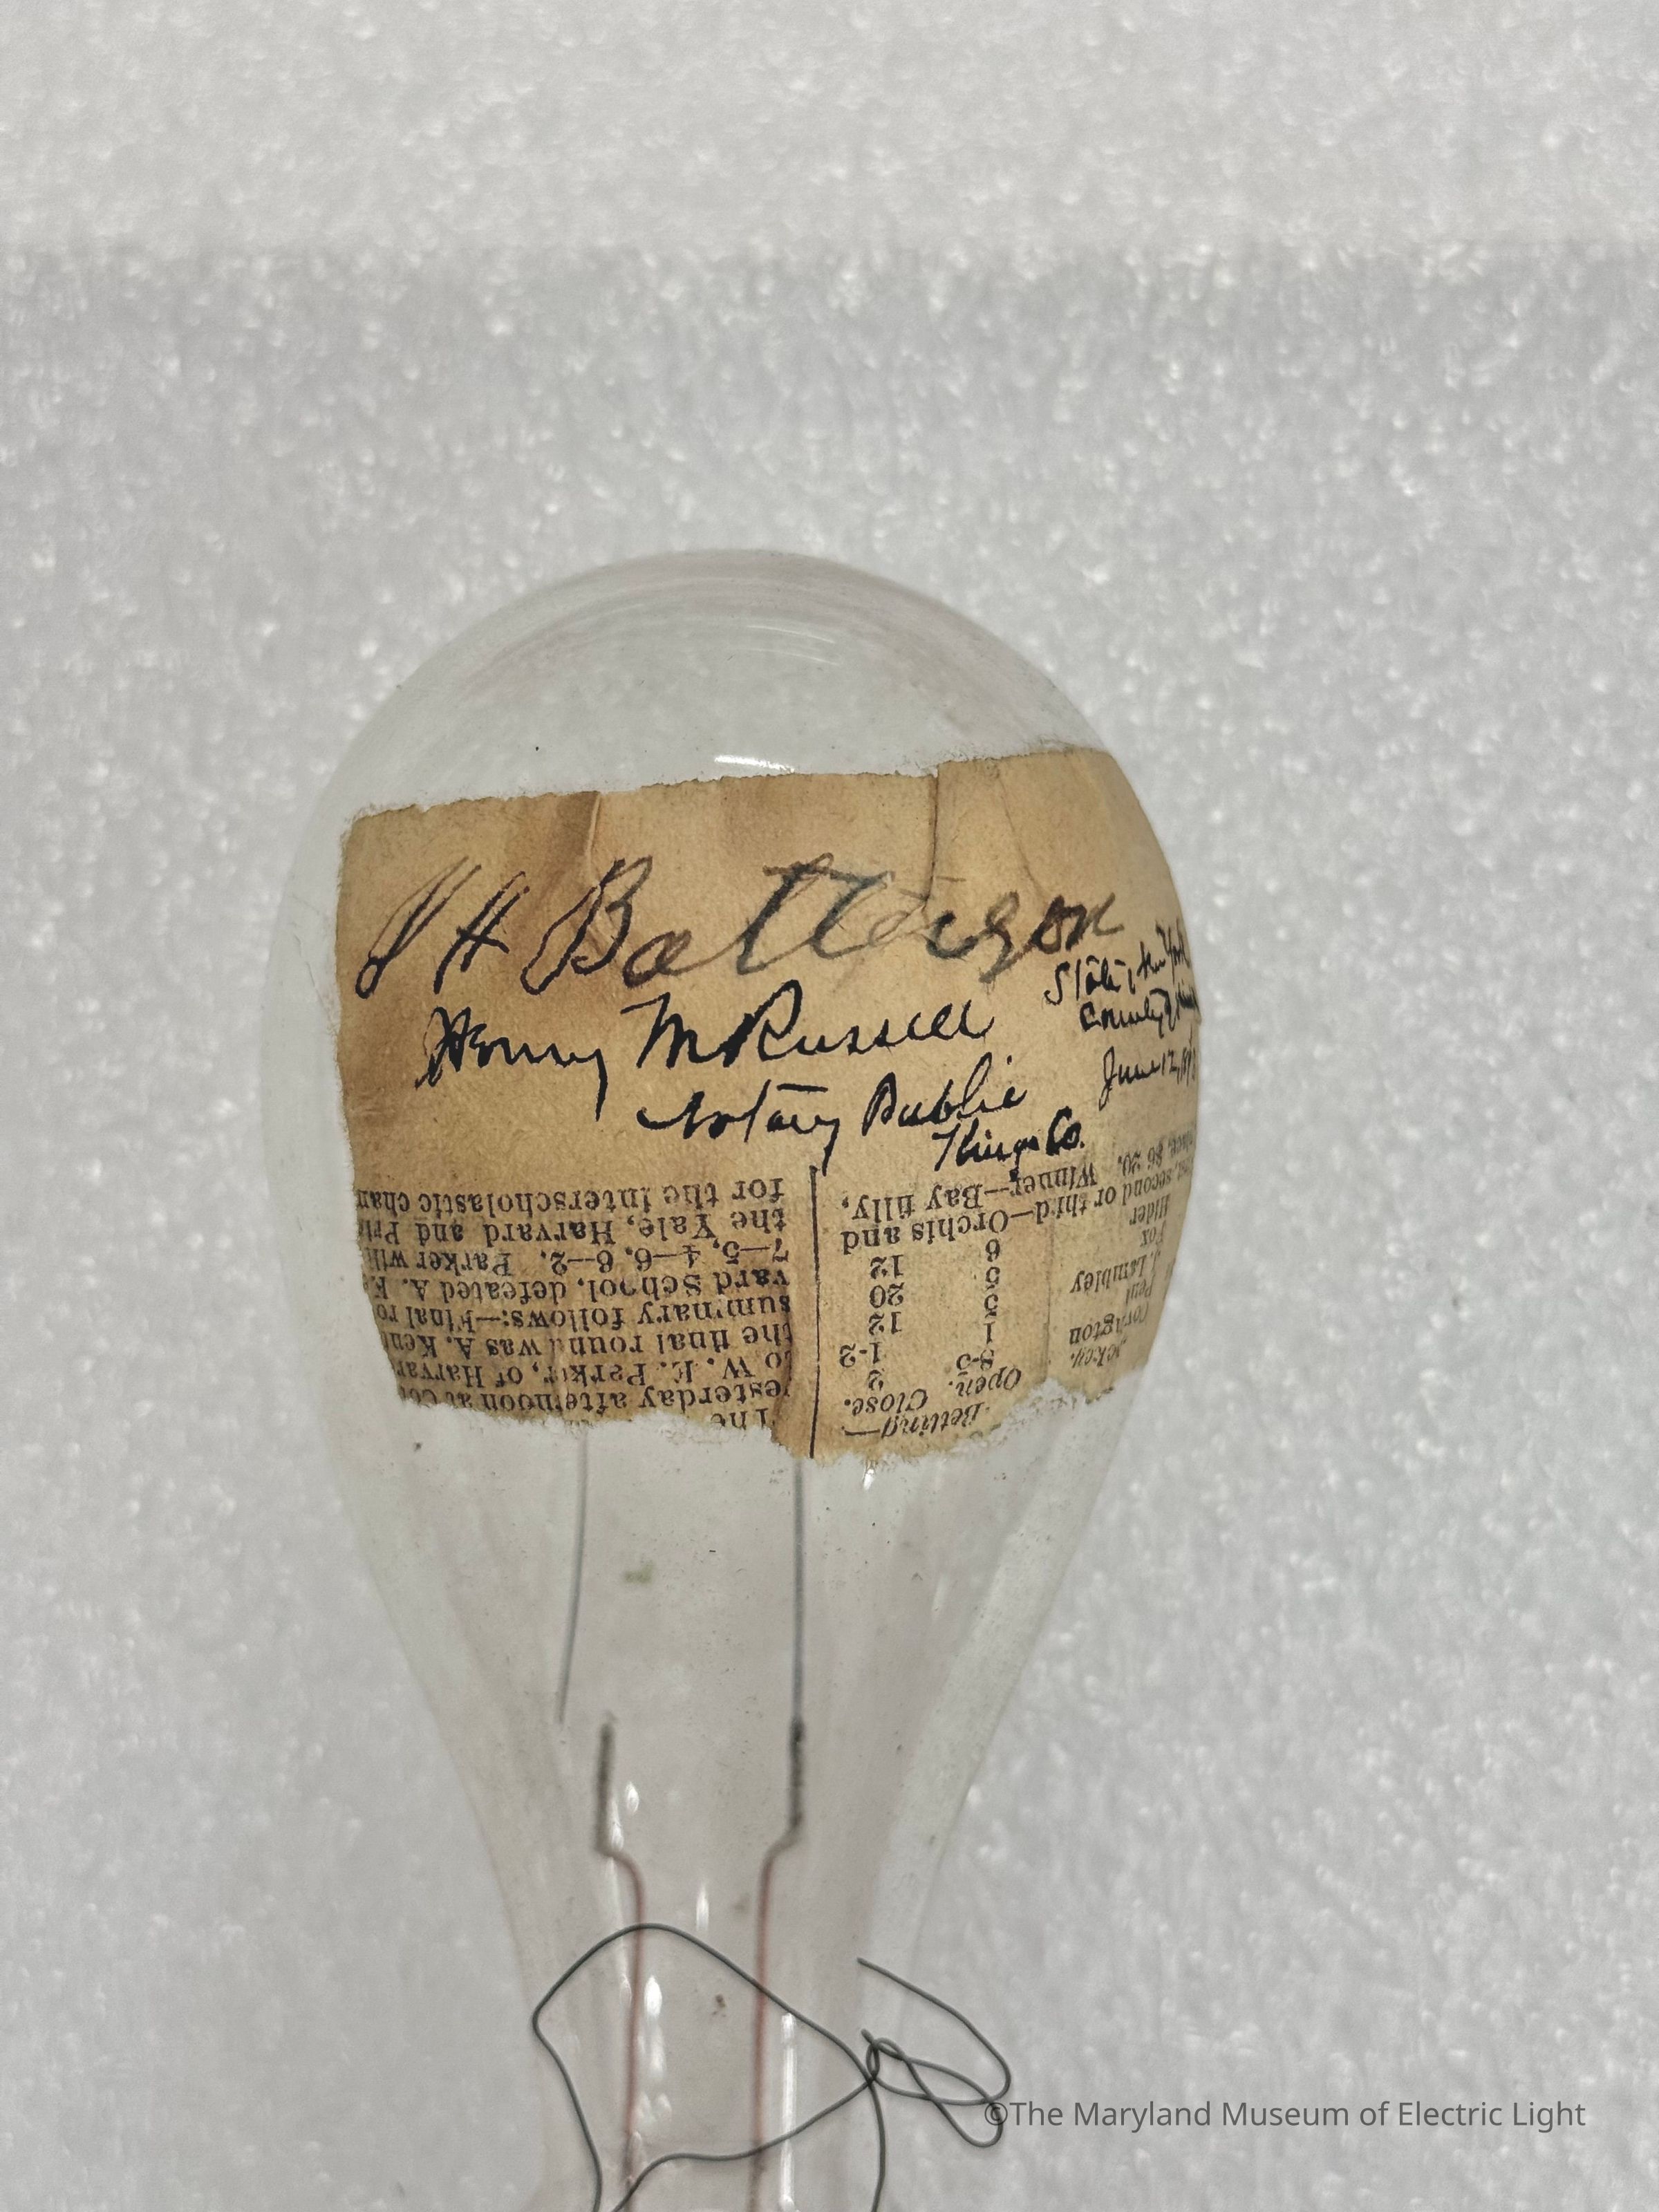 H Batterson
Henry M Russell
Notary Public
Kings Co.
State of New York
County of
June 12, 189
Betting—
Open. Close.
8-5 2
1 1-2
5 12
5 20
6 12
Orchis and
Winner—Bay filly,
second or third—
$6 20,
Lambley
Covington
The
yesterday afternoon at
to W. E. Parker, of Harvar
the final round was A. Ken
summary follows:—Final ro
vard School, defeated A.
7—5, 4—6, 6—2. Parker
the Yale, Harvard and Pri
for the interscholastic cham
©The Maryland Museum of Electric Light